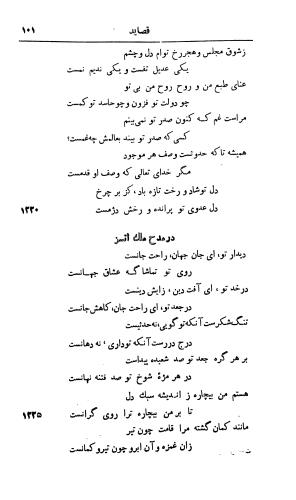 قصاید ۱۰۱
زشوق مجلس وهجر رخ توام دل وچشم
یکی عدیل تفست و یکی ندیم نمست
عنای طبع من و روح روح من بی تو
چو دولت تو فزون وچوحاسد تو کمست
مراست غم که کنون صدر تو نمی‌بینم
کسی که صدر تو بیند بعالمش چه‌غمست؟
همیشه تاکه حدوثست وصف هر موجود
مگر خدای تعالی که وصف او قدمست
دل توشاد و رخت تازه باد، کز بر چرخ
دل عدوی تو پرانده و رخش دژمست ۱۲۳۰
در مدح ملك اتسز
دیدار تو، ای جان جهان، راحت جانست
روی تو تماشا گه عشاق جهانست
درخد تو، ای آفت دین، زایش دینست
درجعد تو، ای راحت جان، کاهش‌جانست
تنگ‌شکرست آنکه توگویی،نه‌حدیثست
درج دررست آنکه توداری، نه دهانست
بر هر گره جعد تو صد شعبده پیداست
در هر مژهٔ شوخ تو صد فتنه نهانست
هستم من بیچاره ز اندیشه سبك دل
تا بر من بیچاره ترا روی گرانست ۱۲۳۵
مانند کمان گشته مرا قامت چون تیر
زان غمزه و آن ابرو چون تیر و کمانست